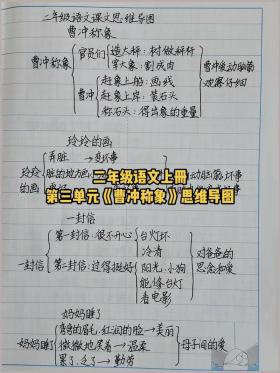 二年级语文课文思维导图
曹冲称象
官员们 造大秤：树做秤杆
宰大象：割成肉
曹冲称象
赶象上船：画线
曹冲 赶象上岸：装石头
称石头：得出象的重量
曹冲爱动脑筋
观察仔细
玲玲的画
弄脏 → 坏事
玲玲的画
二年级语文上册
第三单元《曹冲称象》思维导图
一封信
第一封信：很不开心 台灯坏
冷清
一封信 第二封信：过得挺好 阳光，小狗
能修台灯
看电影
对爸爸的
思念和爱
妈妈睡了
弯弯的眉毛，红润的脸 → 美丽
妈妈睡了 微微地笑着 → 温柔
累了，乏了 → 勤劳
母子间的爱